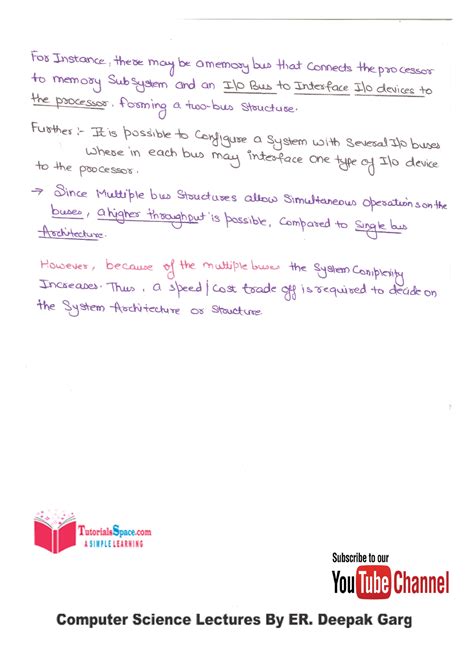 For Instance, there may be a memory bus that Connects the processor
to memory SubSystem and an I/o Bus to Interface I/o devices to
the processor. forming a two-bus Structure.
Further :- It is possible to Configure a System with Several I/o buses
Where in each bus may interface one type of I/o device
to the processor.
→ Since Multiple bus Structures allow Simultaneous Operations on the
buses, a higher throughput is possible, Compared to Single bus
Architecture.
However, because of the multiple buses the System Complexity
Increases. Thus, a speed/cost trade off is required to decide on
the System Architecture or Structure
TutorialsSpace.com
A SIMPLE LEARNING
Subscribe to our
YouTube Channel
Computer Science Lectures By ER. Deepak Garg